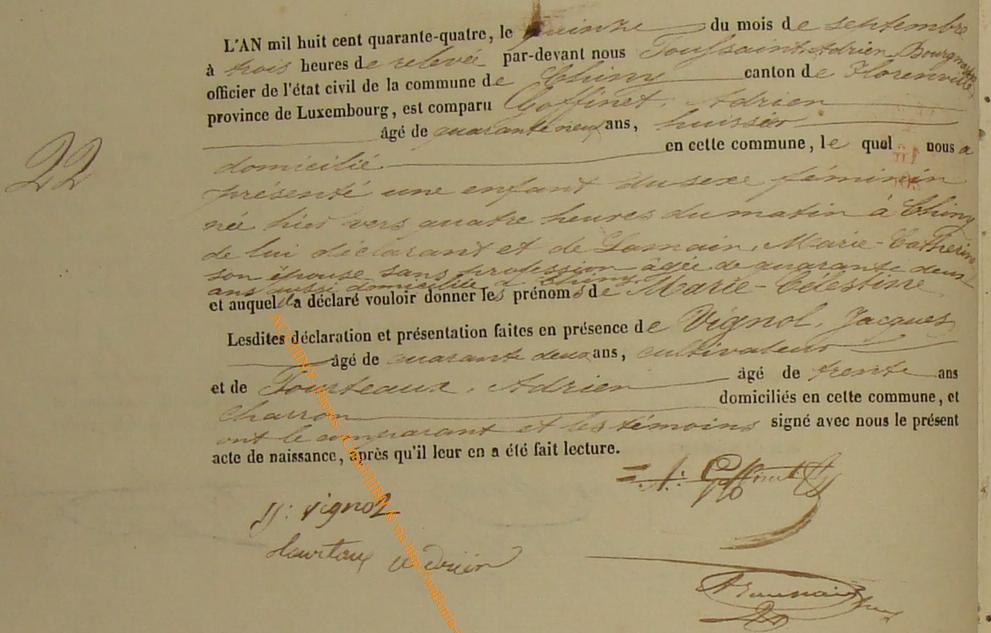 L'AN mil huit cent quarante-quatre, le quinze du mois de septembre
à trois heures de relevée par-devant nous Toussaint-Adrien
officier de l'état civil de la commune de Chiny canton de Florenville
province de Luxembourg, est comparu Goffinet, Adrien
âgé de quarante neuf ans, huissier
domicilié en cette commune, le quel nous a
22
présenté une enfant du sexe féminin
née hier vers quatre heures du matin à Chiny
de lui déclarant et de Lamain, Marie-Catherine
son épouse sans profession âgée de quarante deux
ans aussi domiciliée à Chiny
et auquel il a déclaré vouloir donner les prénoms de Marie-Célestine
Lesdites déclaration et présentation faites en présence de Vignol, Jacques
âgé de quarante deux ans, cultivateur
et de Tourteaux, Adrien âgé de trente ans
charron domiciliés en cette commune, et
ont le comparant et les témoins signé avec nous le présent
acte de naissance, après qu'il leur en a été fait lecture.
A: Goffinet
J: Vignol
adrien